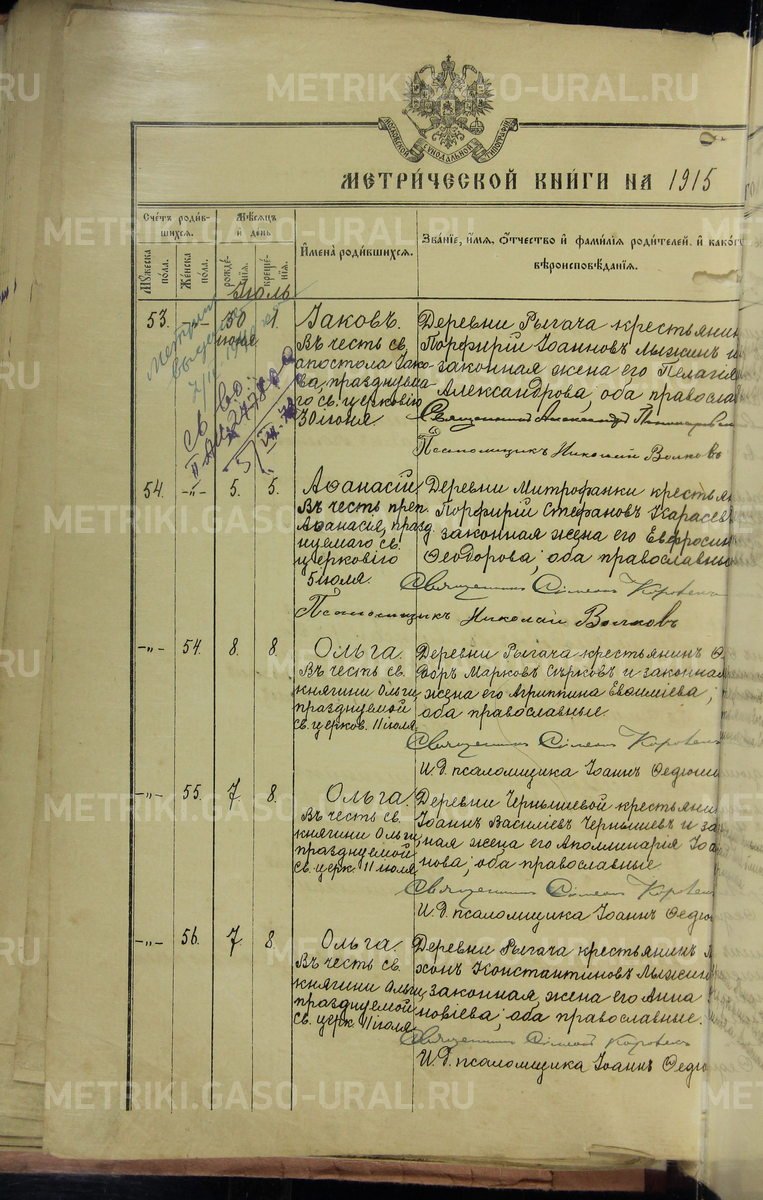 METRIKI.GASO-URAL.RU
МОСКОВСКОЙ СѴНОДАЛЬНОЙ ТИПОГРАФІИ
МЕТРИЧЕСКОЙ КНИГИ НА 1915
Счетъ родившихся.
Мужеска пола.
Женска пола.
Мѣсяцъ и день
рожденія.
крещенія.
Имена родившихся.
Званіе, имя, отчество и фамилія родителей, и какого
вѣроисповѣданія.
Іюль
53. -"- 30 іюня 1.
Іаковъ.
Въ честь св.
апостола Іако-
ва, празднуема-
го св. церковію
30 іюня.
Деревни Рыгача крестьянин
Порфирій Іоанновъ Мыжин и
законная жена его Пелагія
Александрова, оба правосла
Священникъ Александръ
Псаломщикъ Николай Волковъ
54. -"- 5. 5.
Аѳанасій
Въ честь преп.
Аѳанасія, празд
нуемаго св.
церковіго
5 июля.
Деревни Митрофанки крестья
Порфирій Стефановъ Карасевъ
законная жена его Евфросин
Ѳеодорова; оба православны
Священникъ
Псаломщикъ Николай Волковъ
-"- 54. 8. 8.
Ольга.
Въ честь св.
княгини Ольги
празднуемой
св. церков. 11 іюля
Деревни Рыгача крестьянинъ Ѳ
доръ Марковъ Сѣрковъ и законная
жена его Агриппина Евѳиміева;
оба православные.
Священникъ
И. Д. псаломщика Іоаннъ
-"- 55. 7. 8.
Ольга.
Въ честь св.
княгини Ольги,
празднуемой
св. церк. 11 іюля
Деревни Чернышевой крестьяни
Іоаннъ Василіевъ Чернышевъ и за
ная жена его Аполлинарія Іоа
нова; оба православные
Священникъ
И. Д. псаломщика Іоаннъ
-"- 56. 7 8.
Ольга.
Въ честь св.
княгини Ольги,
празднуемой
св. церк. 11 іюля
Деревни Рыгача крестьянинъ
хонъ Константиновъ Мыжин
законная жена его Анна
новіева; оба православные.
Священникъ
И. Д. псаломщика Іоаннъ